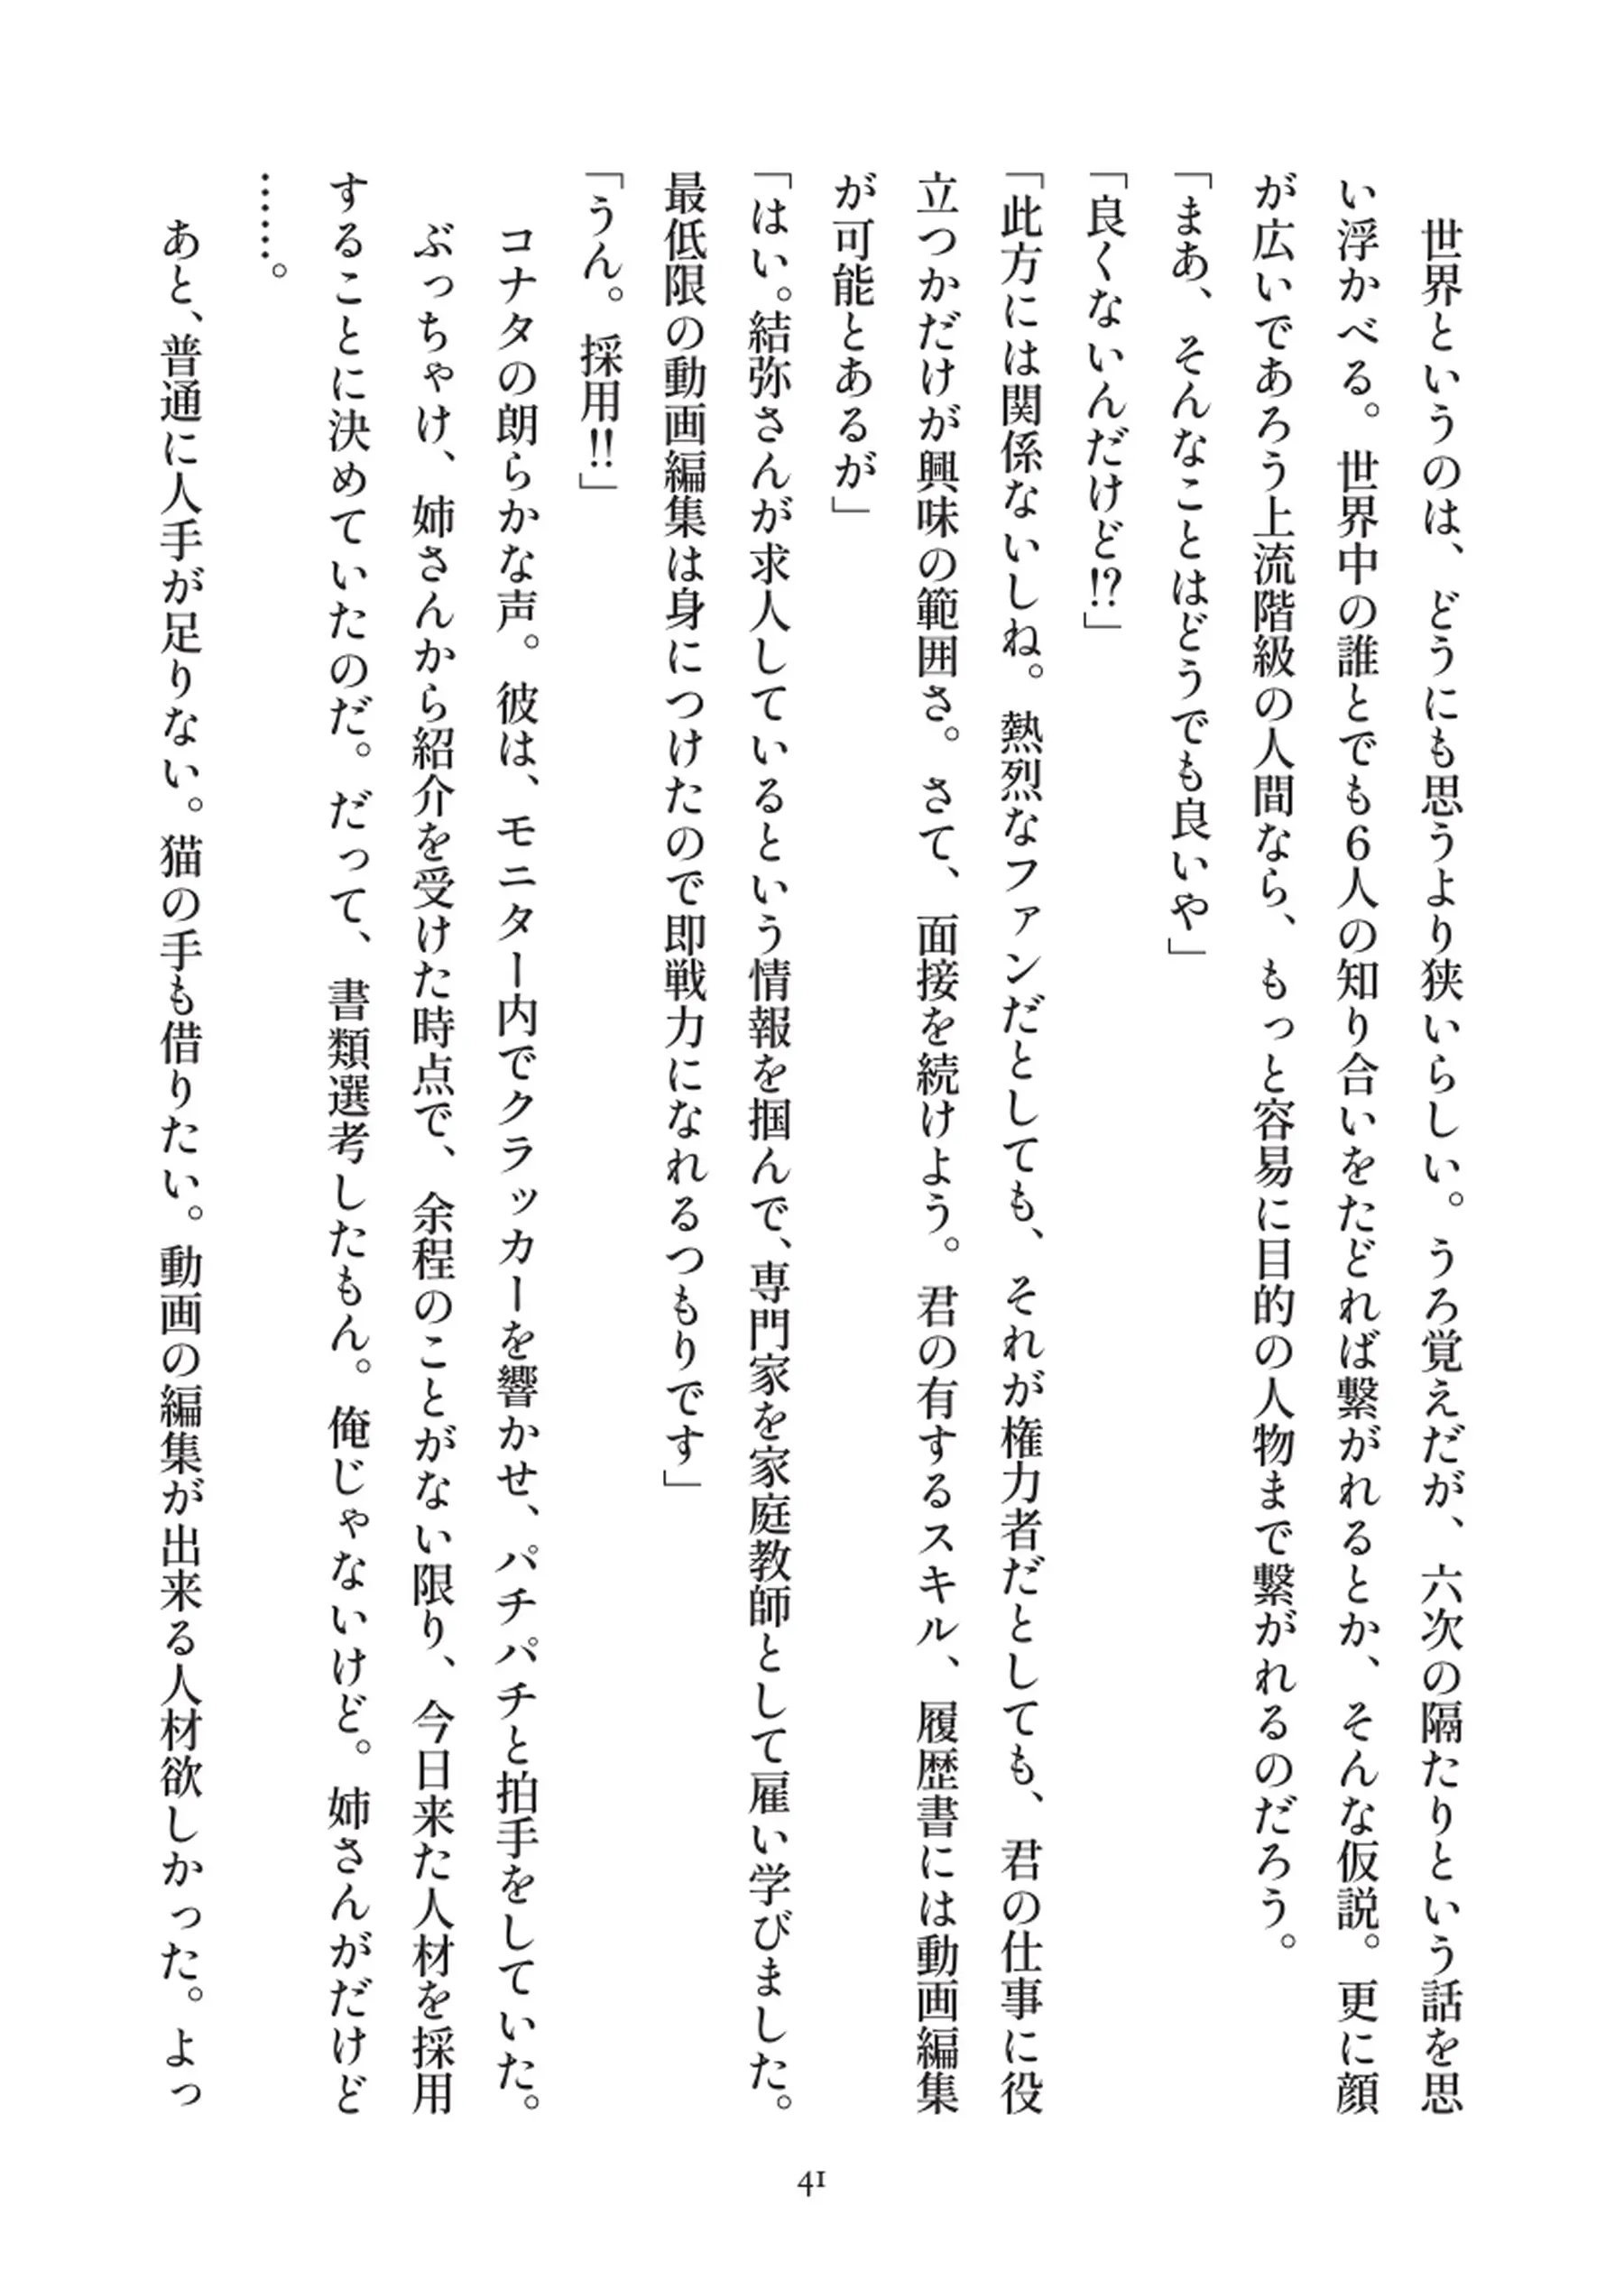 世界というのは、どうにも思うより狭いらしい。うろ覚えだが、六次の隔たりという話を思
い浮かべる。世界中の誰とでも6人の知り合いをたどれば繋がれるとか、そんな仮説。更に顔
が広いであろう上流階級の人間なら、もっと容易に目的の人物まで繋がれるのだろう。
「まあ、そんなことはどうでも良いや」
「良くないんだけど!?」
「此方には関係ないしね。熱烈なファンだとしても、それが権力者だとしても、君の仕事に役
立つかだけが興味の範囲さ。さて、面接を続けよう。君の有するスキル、履歴書には動画編集
が可能とあるが」
「はい。結弥さんが求人しているという情報を掴んで、専門家を家庭教師として雇い学びました。
最低限の動画編集は身につけたので即戦力になれるつもりです」
「うん。採用!!」
コナタの朗らかな声。彼は、モニター内でクラッカーを響かせ、パチパチと拍手をしていた。
ぶっちゃけ、姉さんから紹介を受けた時点で、余程のことがない限り、今日来た人材を採用
することに決めていたのだ。だって、書類選考したもん。俺じゃないけど。姉さんがだけど
……。
あと、普通に人手が足りない。猫の手も借りたい。動画の編集が出来る人材欲しかった。よっ
41